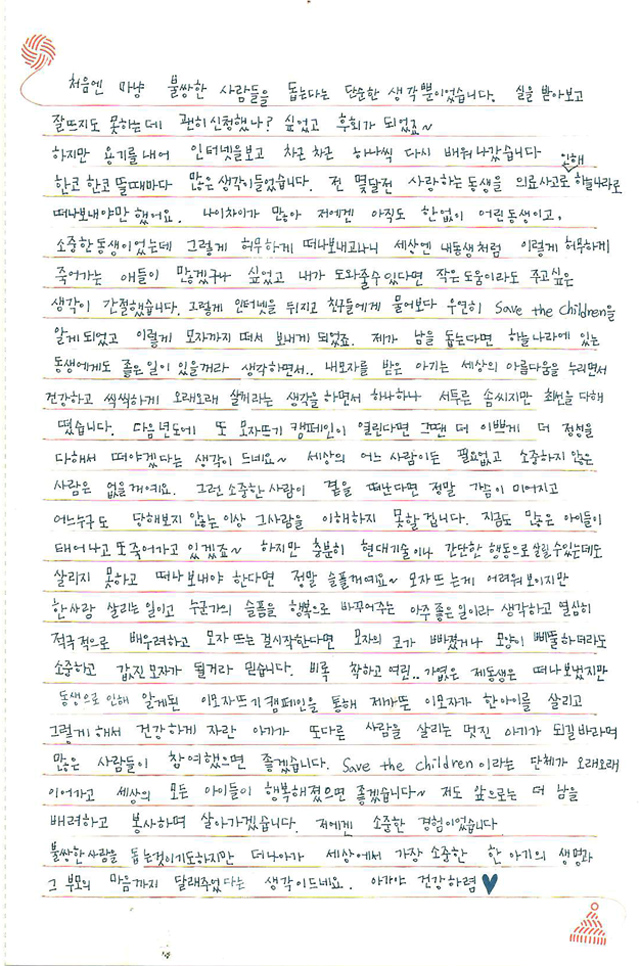 처음엔 마냥 불쌍한 사람들을 돕는다는 단순한 생각뿐이었습니다. 실을 받아보고
잘뜨지도 못하는데 괜히신청했나? 싶었고 후회가 되었죠~
하지만 용기를내어 인터넷을보고 차근 차근 하나씩 다시 배워나갔습니다
인해
한코 한코 뜰때마다 많은생각이들었습니다. 전 몇달전 사랑하는동생을 의료사고로 하늘나라로
떠나보내야만 했어요. 나이차이가 많아 저에겐 아직도 한없이 어린동생이고,
소중한동생이었는데 그렇게 허무하게 떠나보내고나니 세상엔 내동생처럼 이렇게 허무하게
죽어가는 애들이 많겠구나 싶었고 내가 도와줄수있다면 작은도움이라도 주고싶은
생각이 간절했습니다. 그렇게 인터넷을 뒤지고 친구들에게 물어보다 우연히 Save the children을
알게되었고 이렇게 모자까지 떠서 보내게 되었죠. 제가 남을 돕는다면 하늘나라에 있는
동생에게도 좋은일이 있을꺼라 생각하면서.. 내모자를 받은 아기는 세상의 아름다움을 누리면서
건강하고 씩씩하게 오래오래 살꺼라는 생각을 하면서 하나하나 서투른 솜씨지만 최선을 다해
떴습니다. 다음년도에 또 모자뜨기 캠페인이 열린다면 그땐 더 이쁘게 더 정성을
다해서 떠야겠다는 생각이 드네요~ 세상의 어느 사람이든 필요없고 소중하지 않은
사람은 없을꺼예요. 그런 소중한 사람이 곁을 떠난다면 정말 가슴이 미어지고
어느누구도 당해보지 않는이상 그사람을 이해하지 못할겁니다. 지금도 많은 아이들이
태어나고 또죽어가고 있겠죠~ 하지만 충분히 현대기술이나 간단한 행동으로 살릴수있는데도
살리지 못하고 떠나보내야 한다면 정말 슬플꺼에요~ 모자뜨는게 어려워보이지만
한사람 살리는일이고 누군가의 슬픔을 행복으로 바꾸어주는 아주좋은일이라 생각하고 열심히
적극적으로 배우려하고 모자뜨는걸시작한다면 모자의 코가 빠졌거나 모양이 삐뚤하더라도
소중하고 값진모자가 될거라 믿습니다. 비록 착하고 여린.. 가엾은 제동생은 떠나보냈지만
동생으로 인해 알게된 이모자뜨기캠페인을 통해 제가뜬 이모자가 한아이를 살리고
그렇게 해서 건강하게 자란 아기가 또다른 사람을 살리는 멋진 아기가 되길바라며
많은 사람들이 참여했으면 좋겠습니다. Save the children이라는 단체가 오래오래
이어가고 세상의 모든 아이들이 행복해졌으면좋겠습니다~ 저도 앞으로는 더 남을
배려하고 봉사하며 살아가겠습니다. 저에겐 소중한 경험이었습니다
불쌍한사람을 돕는것이기도하지만 더나아가 세상에서 가장 소중한 한 아기의 생명과
그 부모의 마음까지 달래주었다는 생각이드네요. 아가야 건강하렴♥